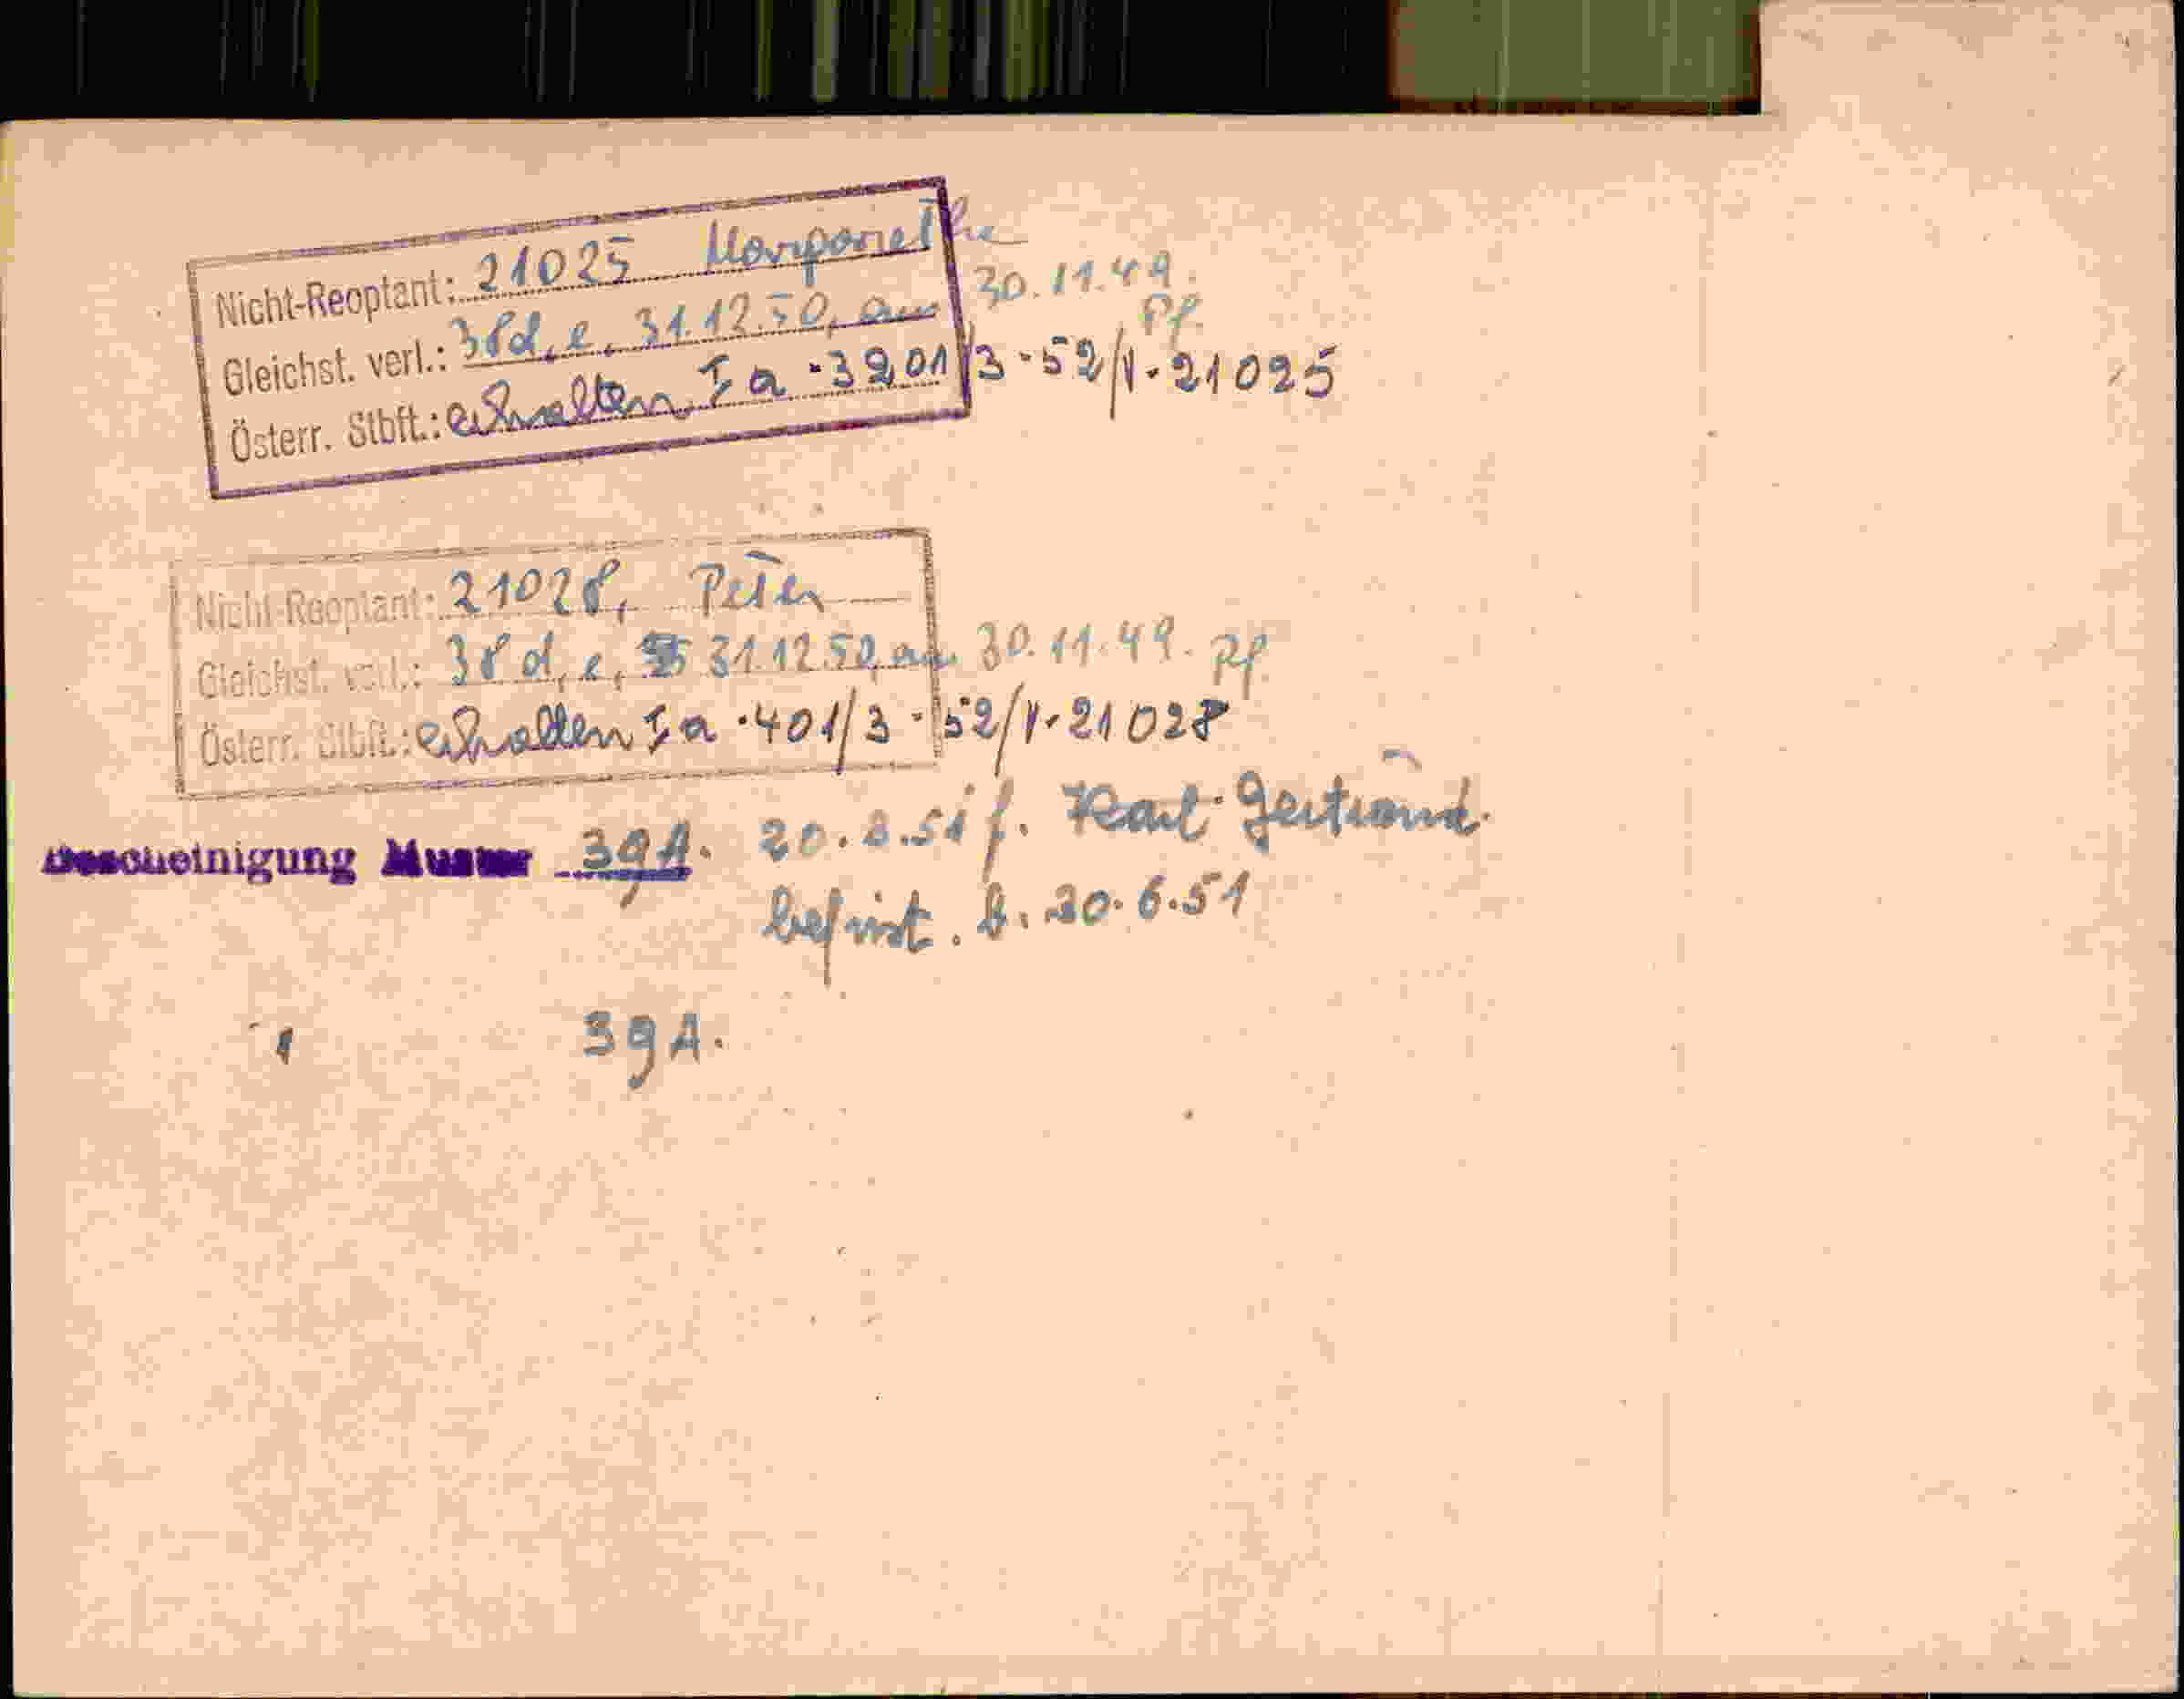 Nicht-Reoptant: 21025 Margarethe
Gleichst. verl.: 38d, e, 31.12.50, aus 30.11.49.
Pf.
Österr. Stbft.: erhalten Ia-3201/3-52/V-21025
Nicht-Reoptant: 21028, Peter
Gleichst. verl.: 38d, e, 31.12.50, aus 30.11.49. Pf.
Österr. Stbft.: erhalten Ia-401/3-52/V-21028
Bescheinigung Muster 39A. 20.3.51 f. Karl-Gertraud.
befrist. b. 20.6.51
" 39A.